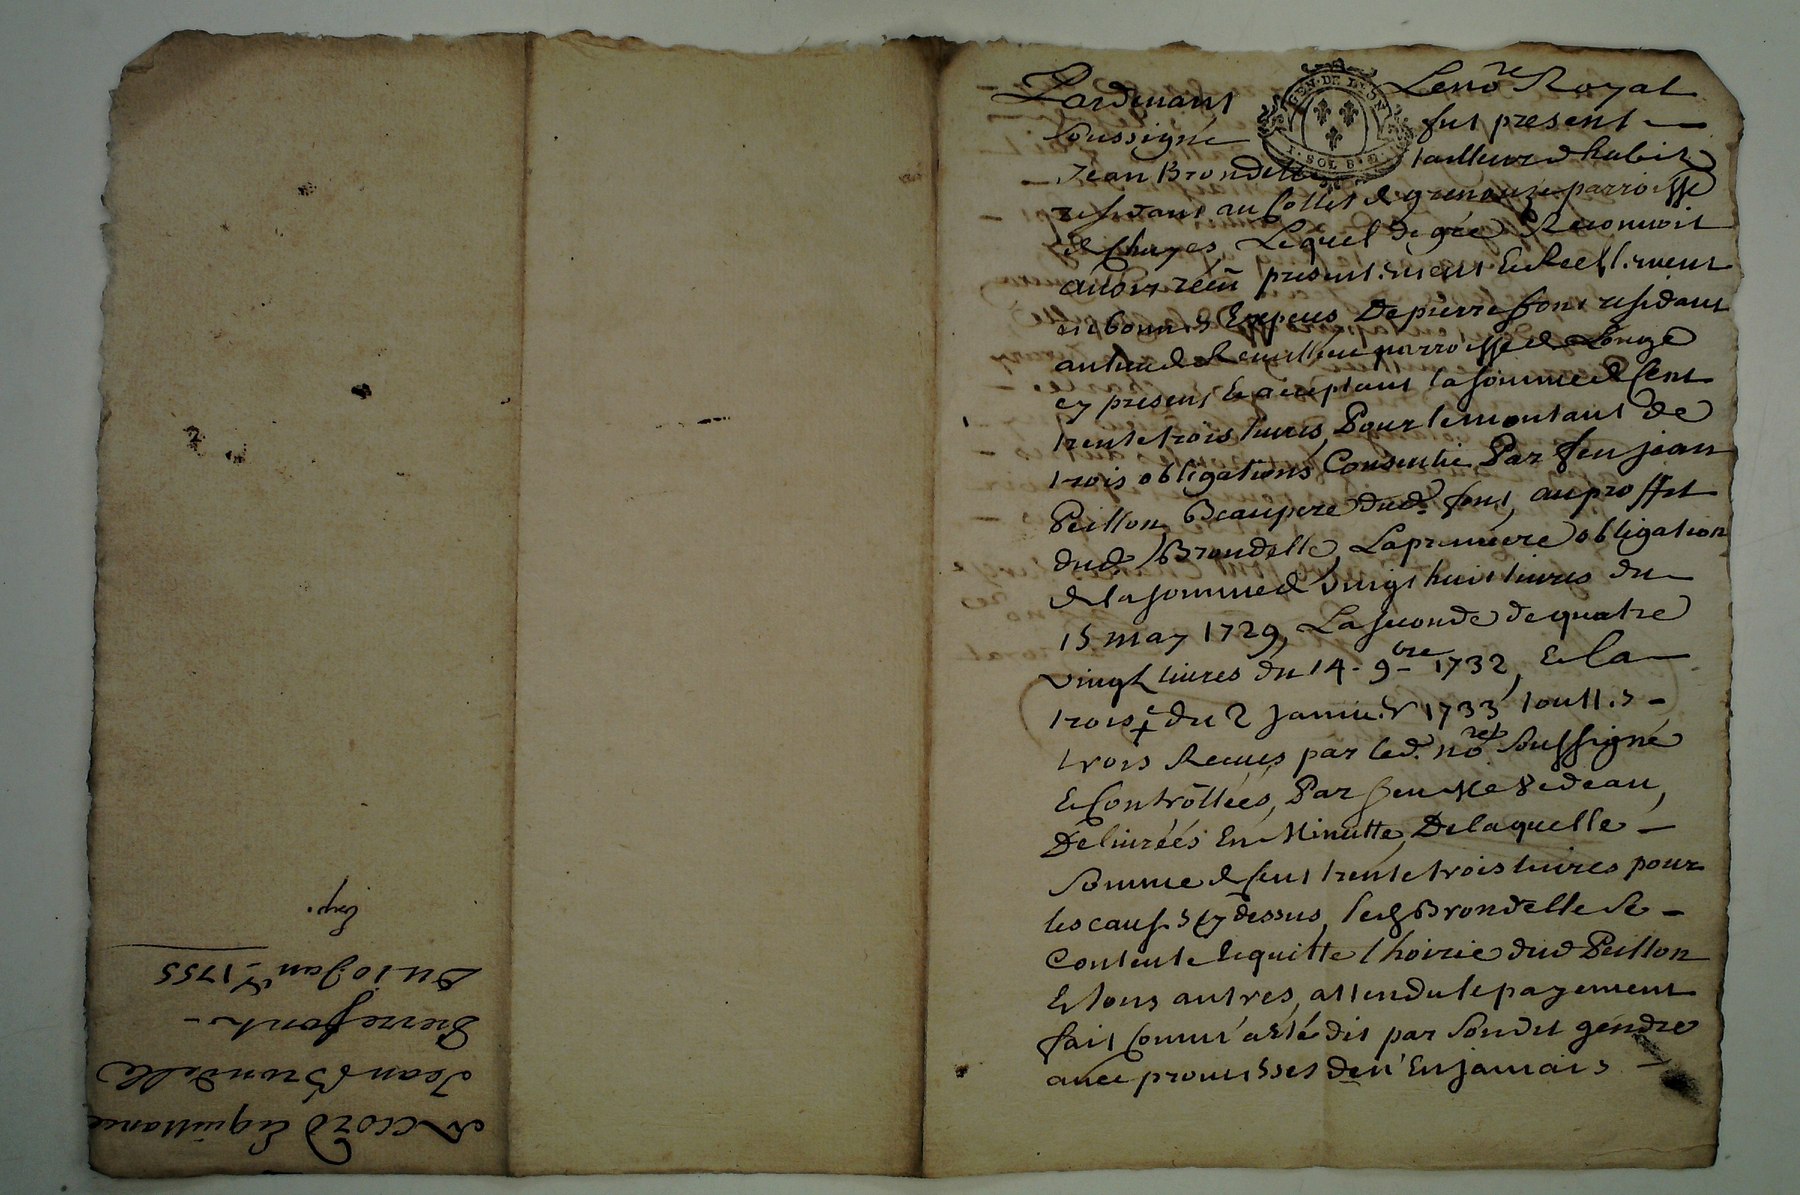 Pardevant Le no.re Royal
soussigné fut present
GEN. DE LYON
1. SOL 8. D.
Jean Brondelle tailleur d'habits
residant au Collet de parroisse
de Chuyes, Lequel de gré Reconnoit
avoir receu presentement & Reellement
en bonnes Especes De pierre font residant
au lieu de parroisse de Longe
cy present & acceptant la somme de Cent
trente trois livres, Pour le montant de
trois obligations Consentie Par feu jean
Peillon Beaupere dud. font, au proffit
dud Brondelle, La premiere obligation
de la somme de vingt huit livres du
15 may 1729, La seconde de quatre
vingt livres du 14 - 9.bre 1732, & la
trois.e du 2 Janvier 1733 touttes
trois Receues par led. no.re soussigné
& Controllées, Par feu Me Bedeau,
Delivréés En Minutte, De laquelle
somme de Cent trente trois livres pour
les causes cy dessus, led Brondelle se
Contente & quitte l'hoirie dud Peillon
& tous autres, attendu le payement
fait Comm'a esté dit par son dit gendre
avec promesses de n'En jamais
Accord & quittance
Jean Brondelle
Pierre font
Du 10 Jan.er 1755
Exp.